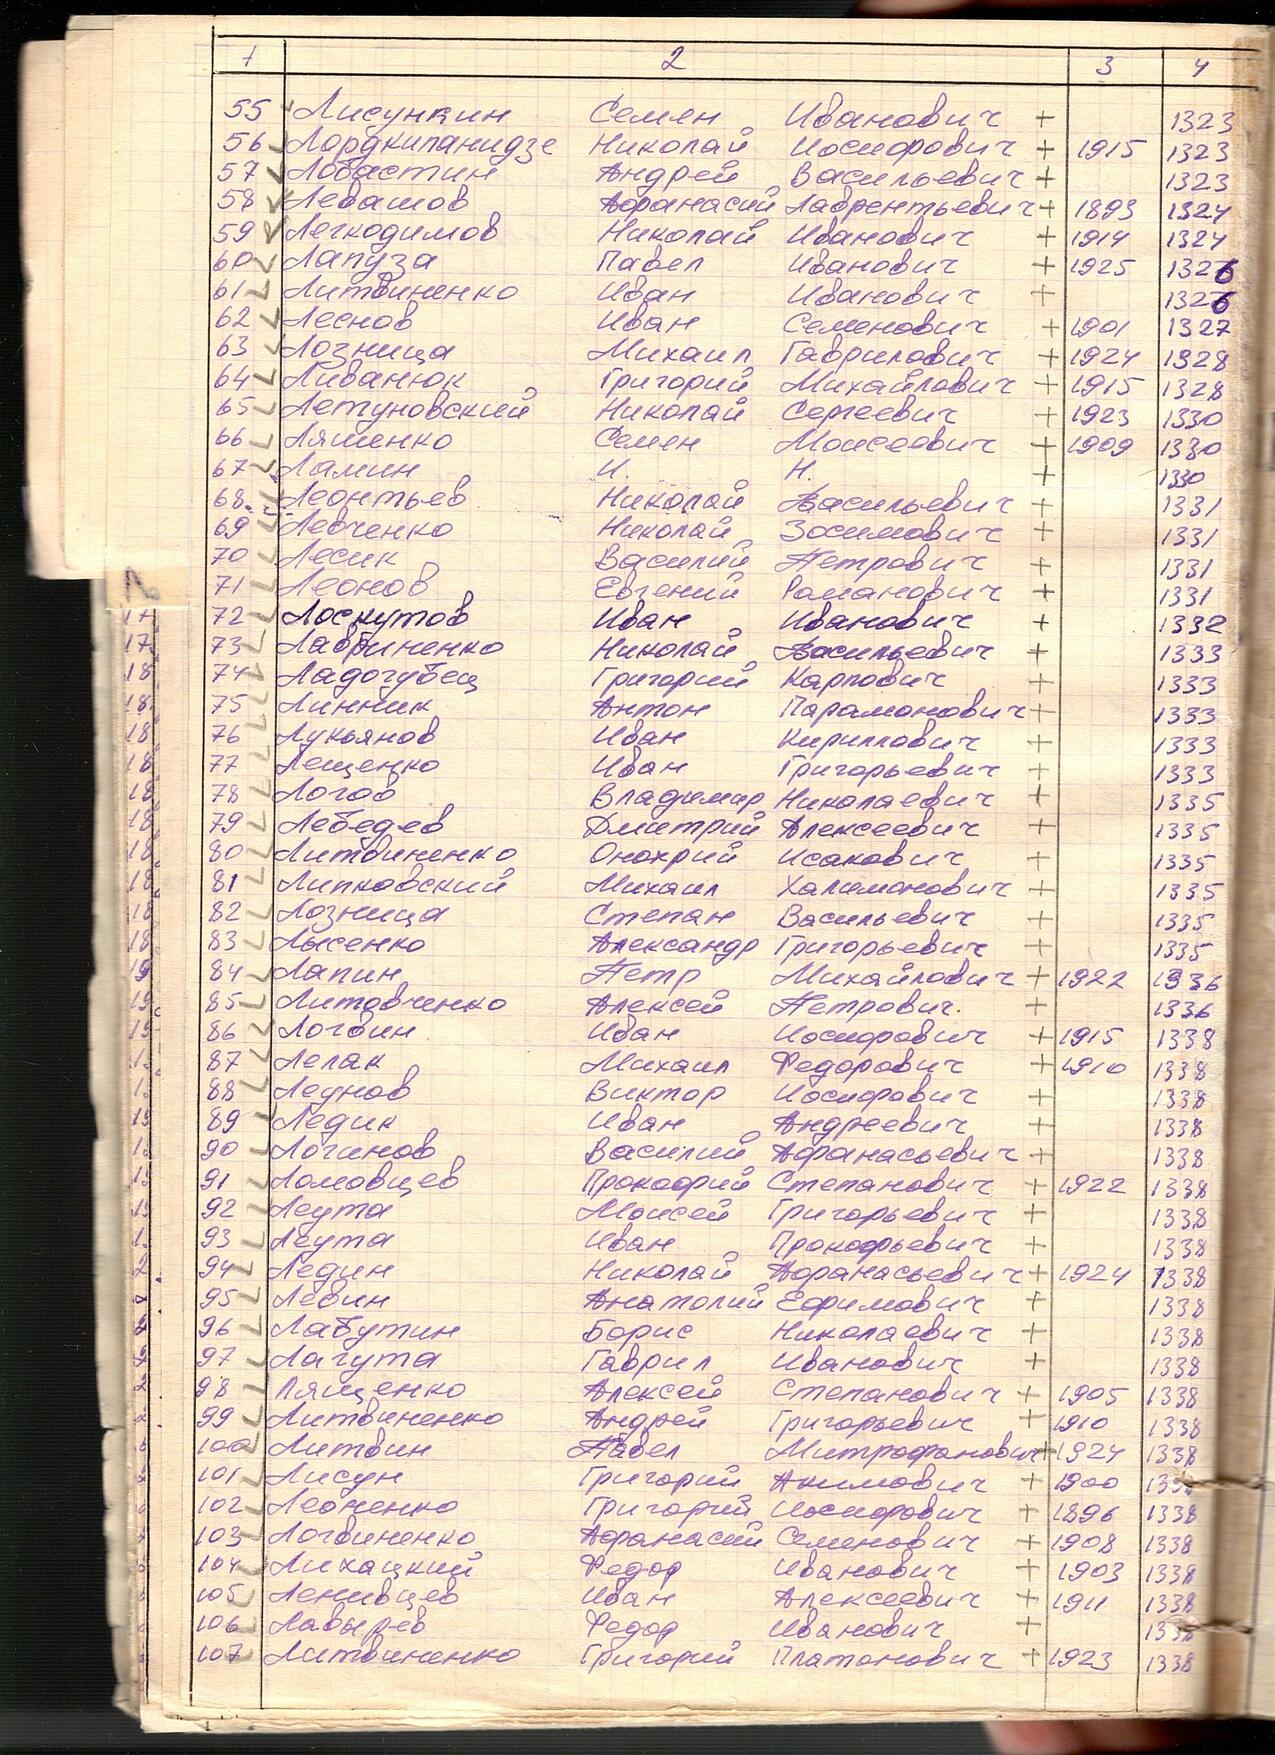 1 2 3 4
55 Лисункин Семен Иванович + 1323
56 Лордкипанидзе Николай Иосифович + 1915 1323
57 Лобастин Андрей Васильевич + 1323
58 Левашов Афанасий Лаврентьевич + 1893 1324
59 Легкодимов Николай Иванович + 1914 1324
60 Лапуза Павел Иванович + 1925 1326
61 Литвиненко Иван Иванович + 1326
62 Леснов Иван Семенович + 1901 1327
63 Лозница Михаил Гаврилович + 1924 1328
64 Ливанюк Григорий Михайлович + 1915 1328
65 Летуновский Николай Сергеевич + 1923 1330
66 Ляшенко Семен Моисеевич + 1909 1330
67 Ламин И. Н. + 1330
68 Леонтьев Николай Васильевич + 1331
69 Левченко Николай Зосимович + 1331
70 Лесик Василий Петрович + 1331
71 Леонов Евгений Романович + 1331
72 Лоскутов Иван Иванович + 1332
73 Лавриненко Николай Васильевич + 1333
74 Ладогубец Григорий Карпович + 1333
75 Линник Антон Парамонович + 1333
76 Лукьянов Иван Кириллович + 1333
77 Лещенко Иван Григорьевич + 1333
78 Логов Владимир Николаевич + 1335
79 Лебедев Дмитрий Алексеевич + 1335
80 Литвиненко Онохрий Исакович + 1335
81 Липковский Михаил Халимонович + 1335
82 Лозница Степан Васильевич + 1335
83 Лысенко Александр Григорьевич + 1335
84 Лапин Петр Михайлович + 1922 1336
85 Литовченко Алексей Петрович. + 1336
86 Логвин Иван Иосифович + 1915 1338
87 Лепак Михаил Федорович + 1910 1338
88 Леунов Виктор Иосифович + 1338
89 Ледик Иван Андреевич + 1338
90 Логинов Василий Афанасьевич + 1338
91 Ломовцев Прокофий Степанович + 1922 1338
92 Леута Моисей Григорьевич + 1338
93 Леута Иван Прокофьевич + 1338
94 Ледин Николай Афанасьевич + 1924 1338
95 Левин Анатолий Ефимович + 1338
96 Лабутин Борис Николаевич + 1338
97 Лагута Гаврил Иванович + 1338
98 Лященко Алексей Степанович + 1905 1338
99 Литвиненко Андрей Григорьевич + 1910 1338
100 Литвин Павел Митрофанович + 1924 1338
101 Лисун Григорий Акимович + 1900 1338
102 Леоненко Григорий Иосифович + 1896 1338
103 Логвиненко Афанасий Семенович + 1908 1338
104 Лихацкий Федор Иванович + 1903 1338
105 Ленивцев Иван Алексеевич + 1911 1338
106 Лавырев Федор Иванович + 1338
107 Литвиненко Григорий Платонович + 1923 1338